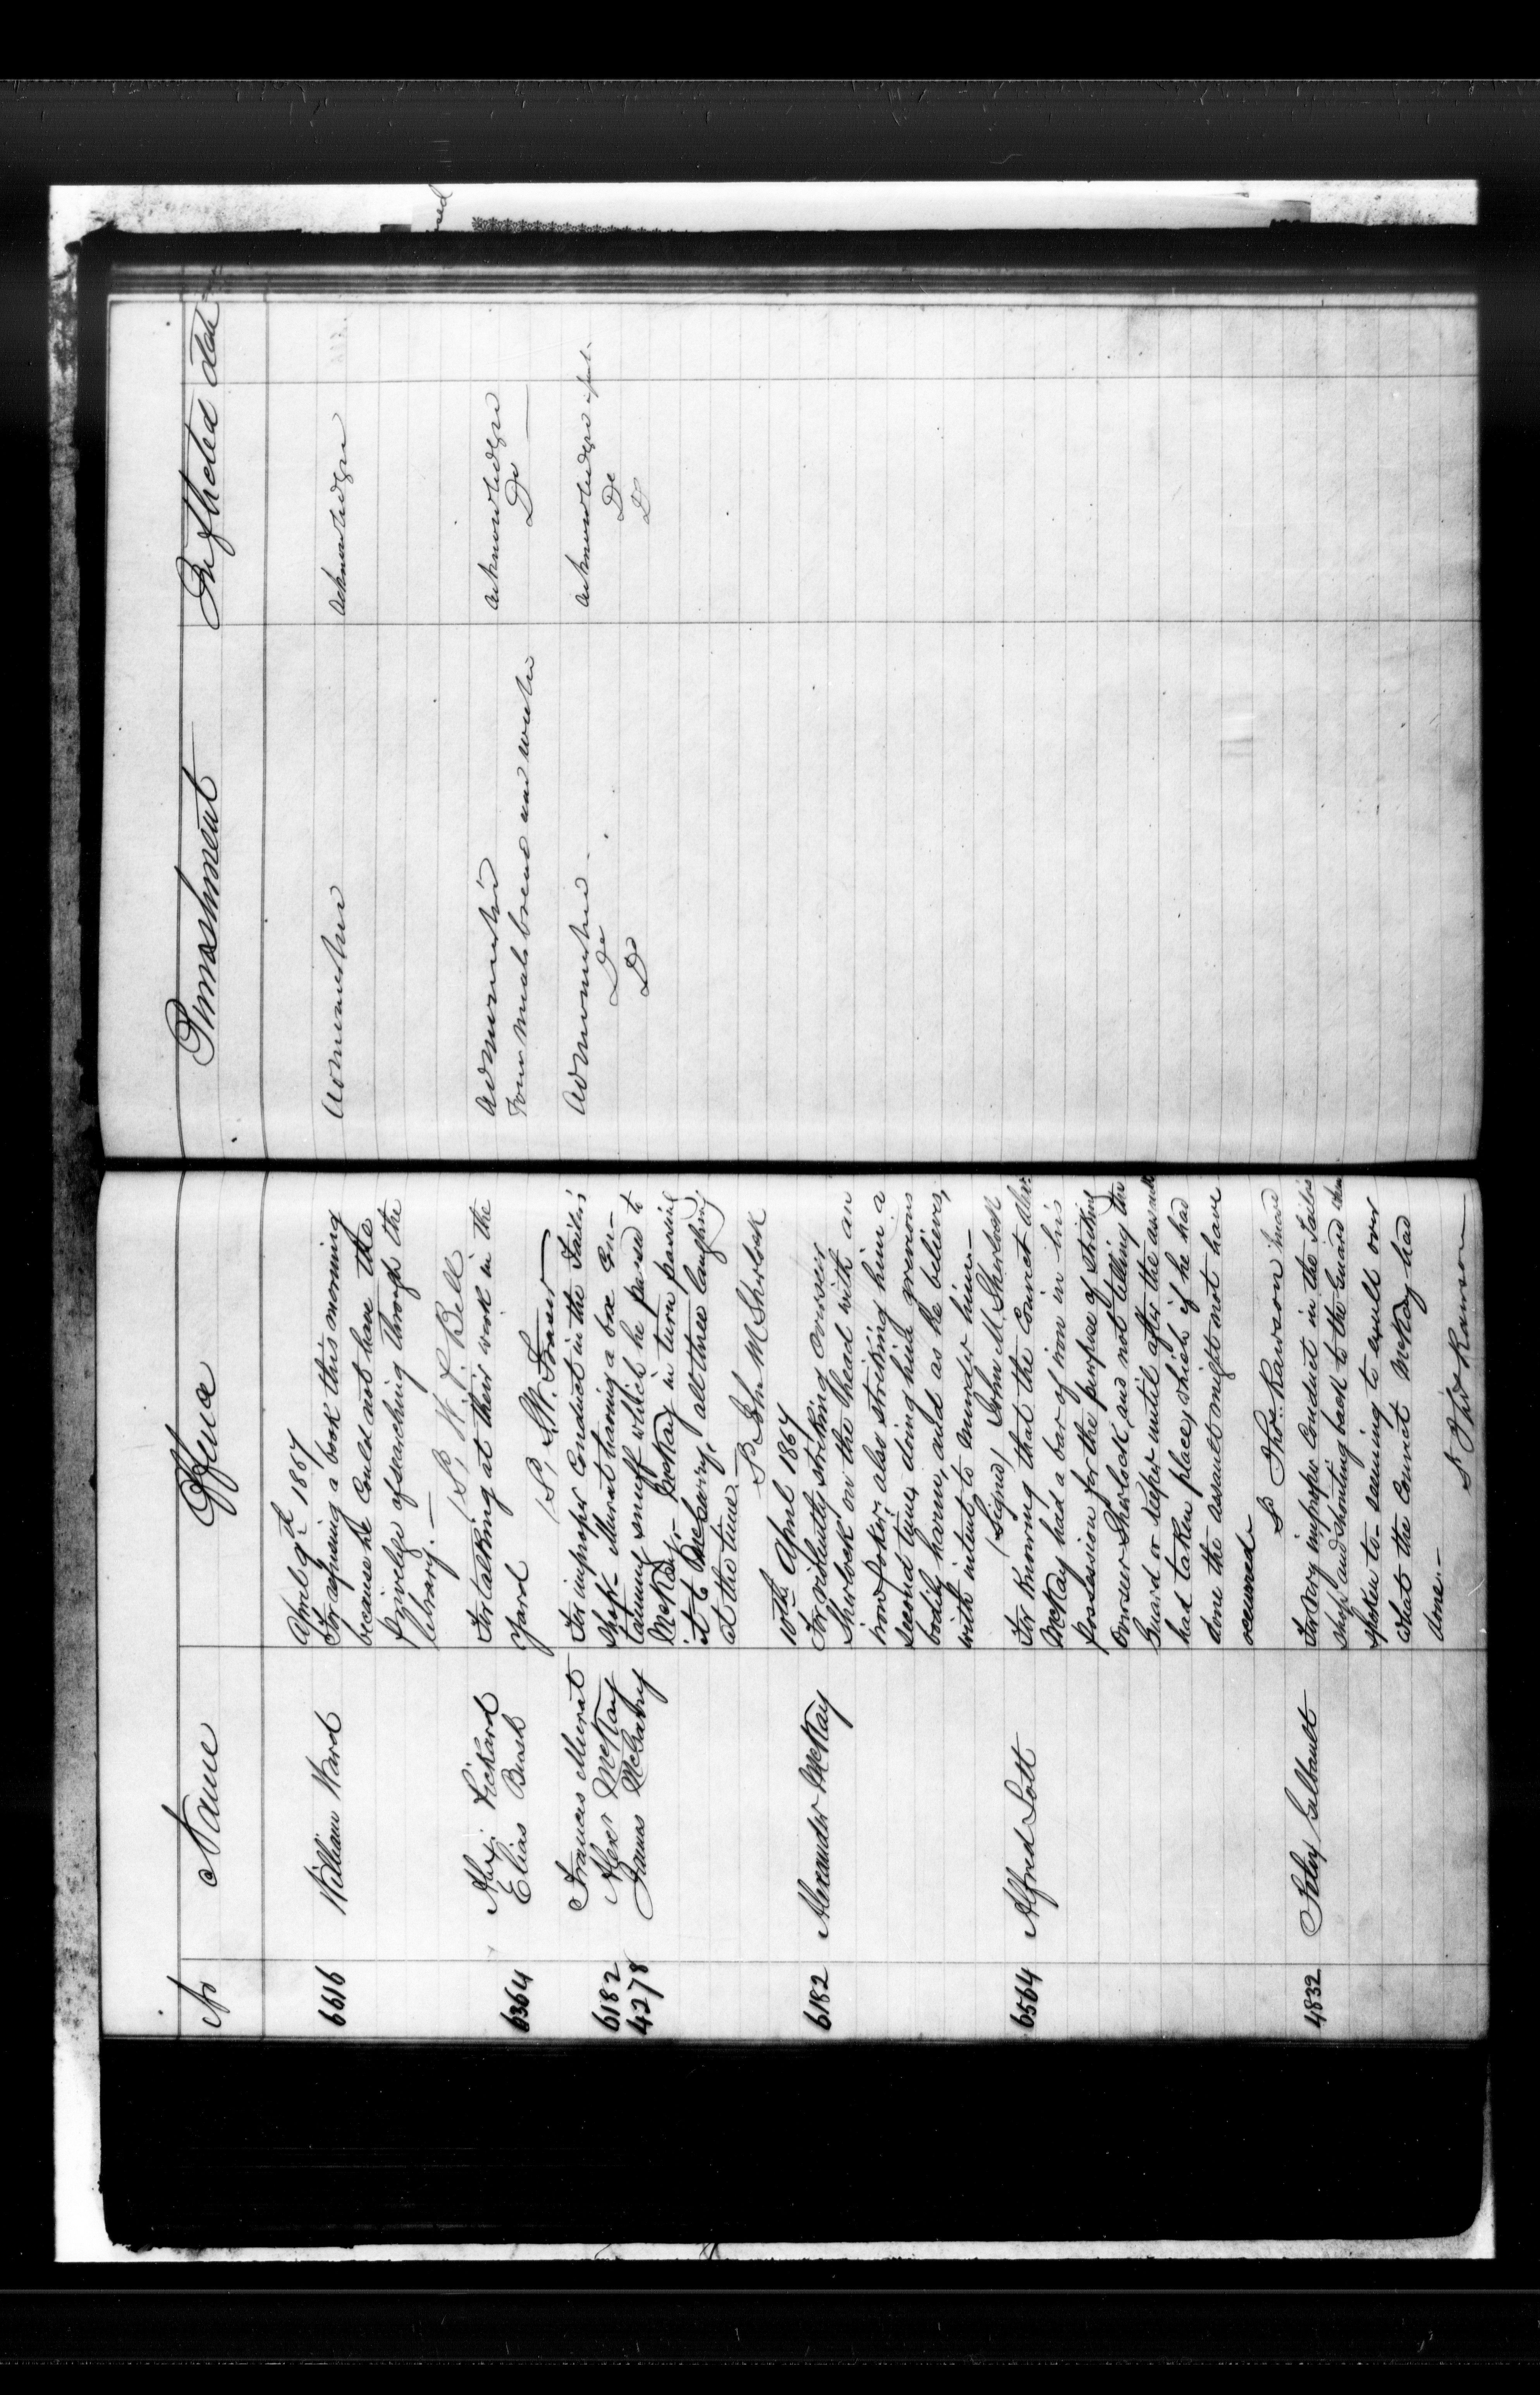 No Name Offence Punishment Inflicted
April 9th 1867
6616 William Ward For refusing a book this morning Admonition Acknowledges
because he could not have the
privelege of searching through the
library.—
(S) W. F. Bell
Pickard For talking at their work in the Admonition Acknowledges
6364 Elias Bush Yard Four meals bread and water Do
(S) W. Fraser
Francis Murat For improper Conduct in the Tailor's Admonition Acknowledges
6182 Alexr McKay Shop— Murat having a box con- Do Do
4278 James McGarry taining snuff which he passed to Do Do
McKay— McKay in turn passing
it to McGarry, all three laughing
at the time.—
S John M Sherlock
10th April 1867
6182 Alexander McKay For violently striking Overseer
Sherlock on the head with an
iron poker, also striking him a
second time, doing him grevious
bodily harm, and as he believes,
with intent to murder him.—
(Signed) John M. Sherlock
6564 Alfred Lott For knowing that the Convict Alexr
McKay had a bar of iron in his
possession for the purpose of striking
Overseer Sherlock, and not telling the
Guard or Keeper until after the assault
had taken place, which if he had
done the assault might not have
occurred
S Thos. Rawson
4832 Felix Galbault For very improper Conduct in the Tailor's
shop and shouting back to the Guard when
spoken to— seeming to exult over
what the Convict McKay had
done.—
S Thos Rawson